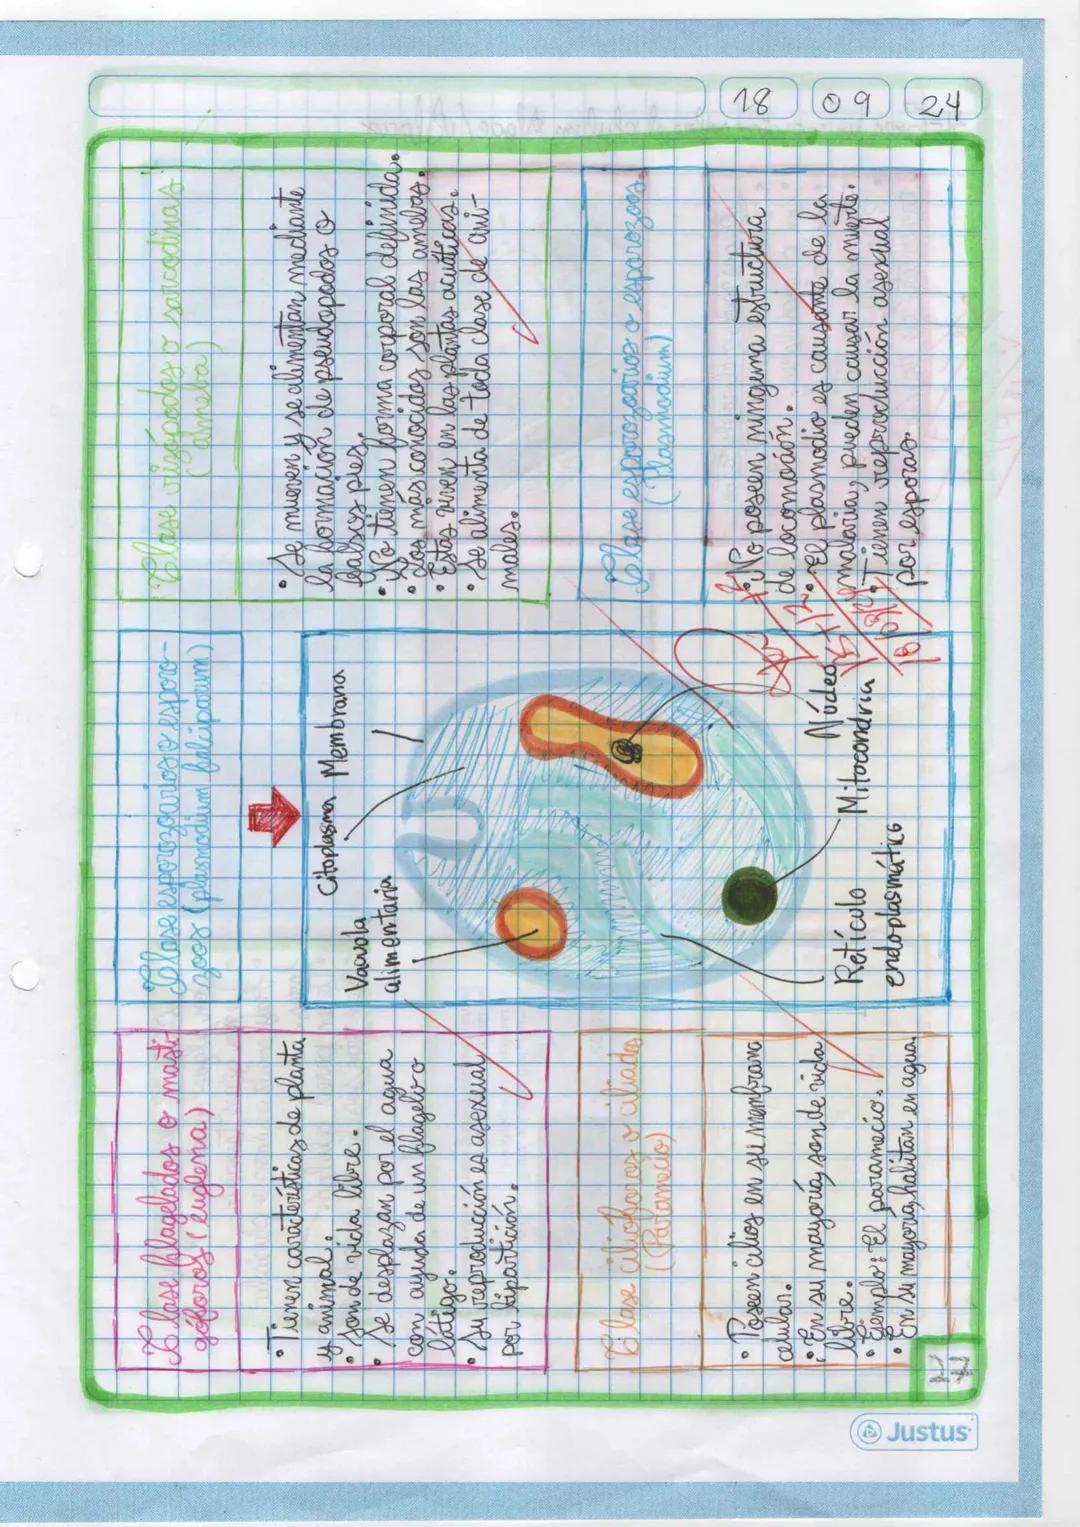 18 09 24
Clase flagelados o masti-
góforos (euglena)
• Tienen características de planta
y animal.
• Son de vida libre.
• Se desplazan por el agua
con ayuda de un flagelo o
látigo.
• Su reproducción es asexual
por bipartición.
Clase cilioforos o ciliados
(Paramecio)
• Poseen cilios en su membrana
celular.
• En su mayoría, son de vida
libre.
• Ejemplo: El paramecio.
• En su mayoría, habitan en agua.
Clase esporozoarios o esporo-
zoos (plasmodium falciparum)
Citoplasma Membrana
Vacuola
alimentaria
Núcleo
Mitocondria
Retículo
endoplasmático
Clase rizópodos o sarcodinas
(almeba)
• Se mueven y se alimentan mediante
la formación de pseudopodos o
falsos pies.
• No tienen forma corporal definida.
• Los más conocidos son las amebas.
• Estos viven en las plantas acuáticas.
• Se alimenta de toda clase de ani-
males.
Clase esporozoarios o esporozoos
(Plasmodium)
• No poseen ninguna estructura
de locomoción.
• El plasmodio es causante de la
malaria, pueden causar la muerte.
• Tienen reproducción asexual
por esporas.
Justus